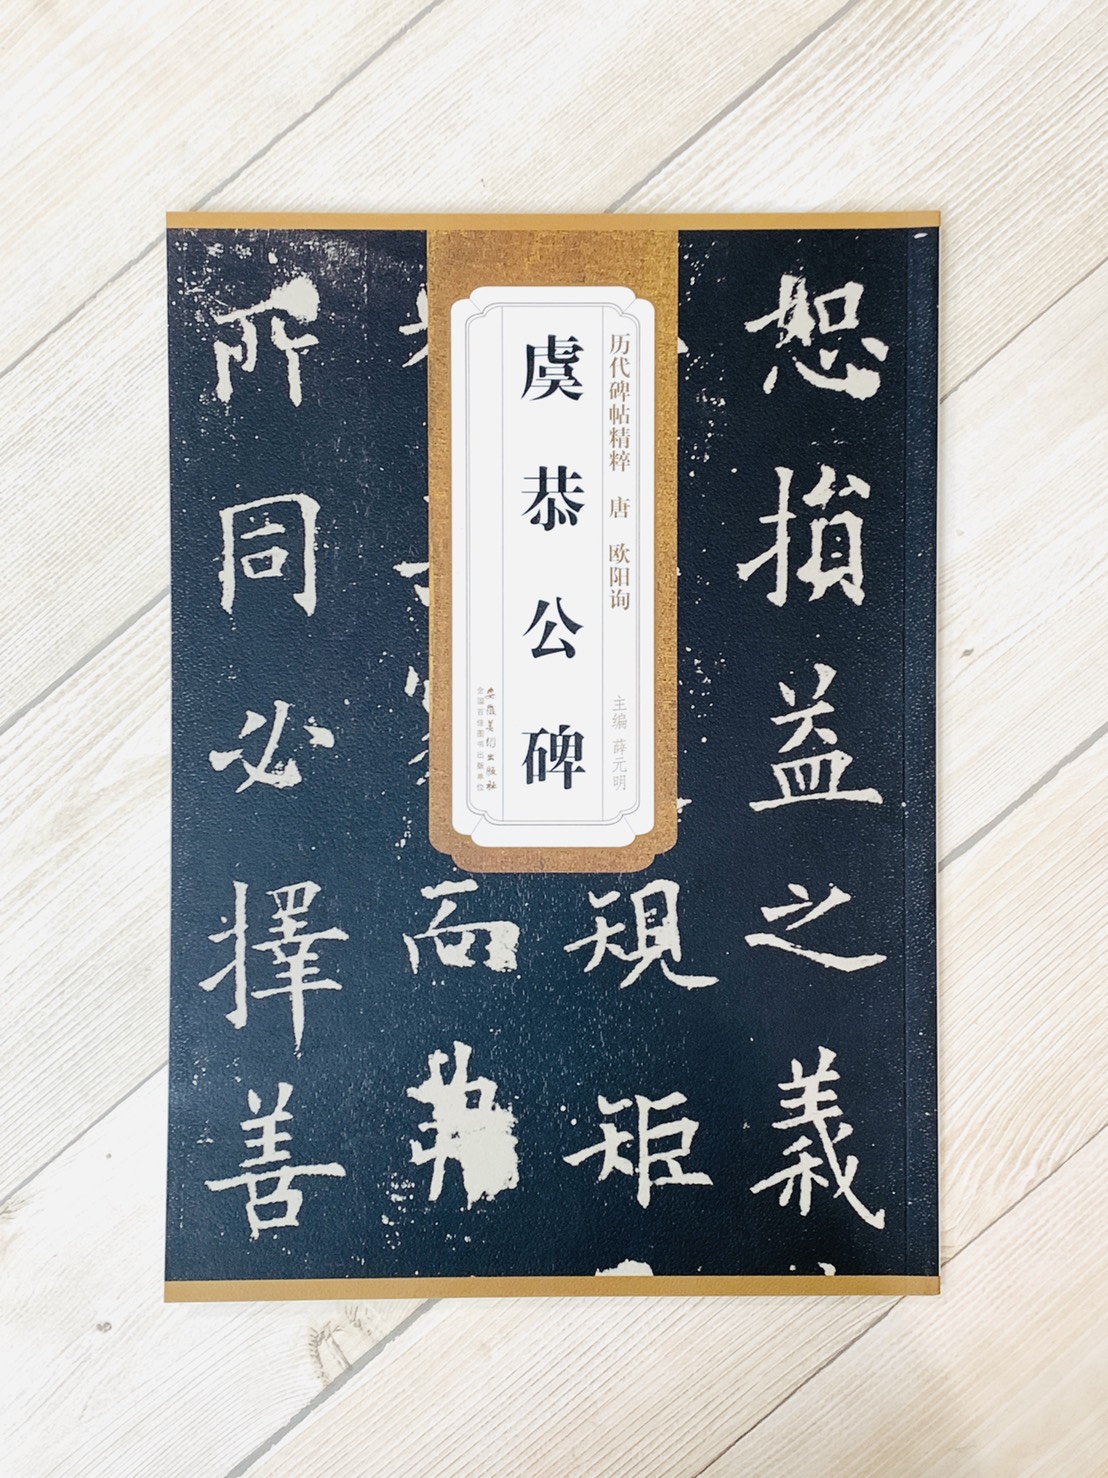 历代碑帖精粹 唐 欧阳询
主编 薛元明
虞恭公碑
安徽美术出版社
全国百佳图书出版单位
恕損益之義
規矩
而
所同必擇善